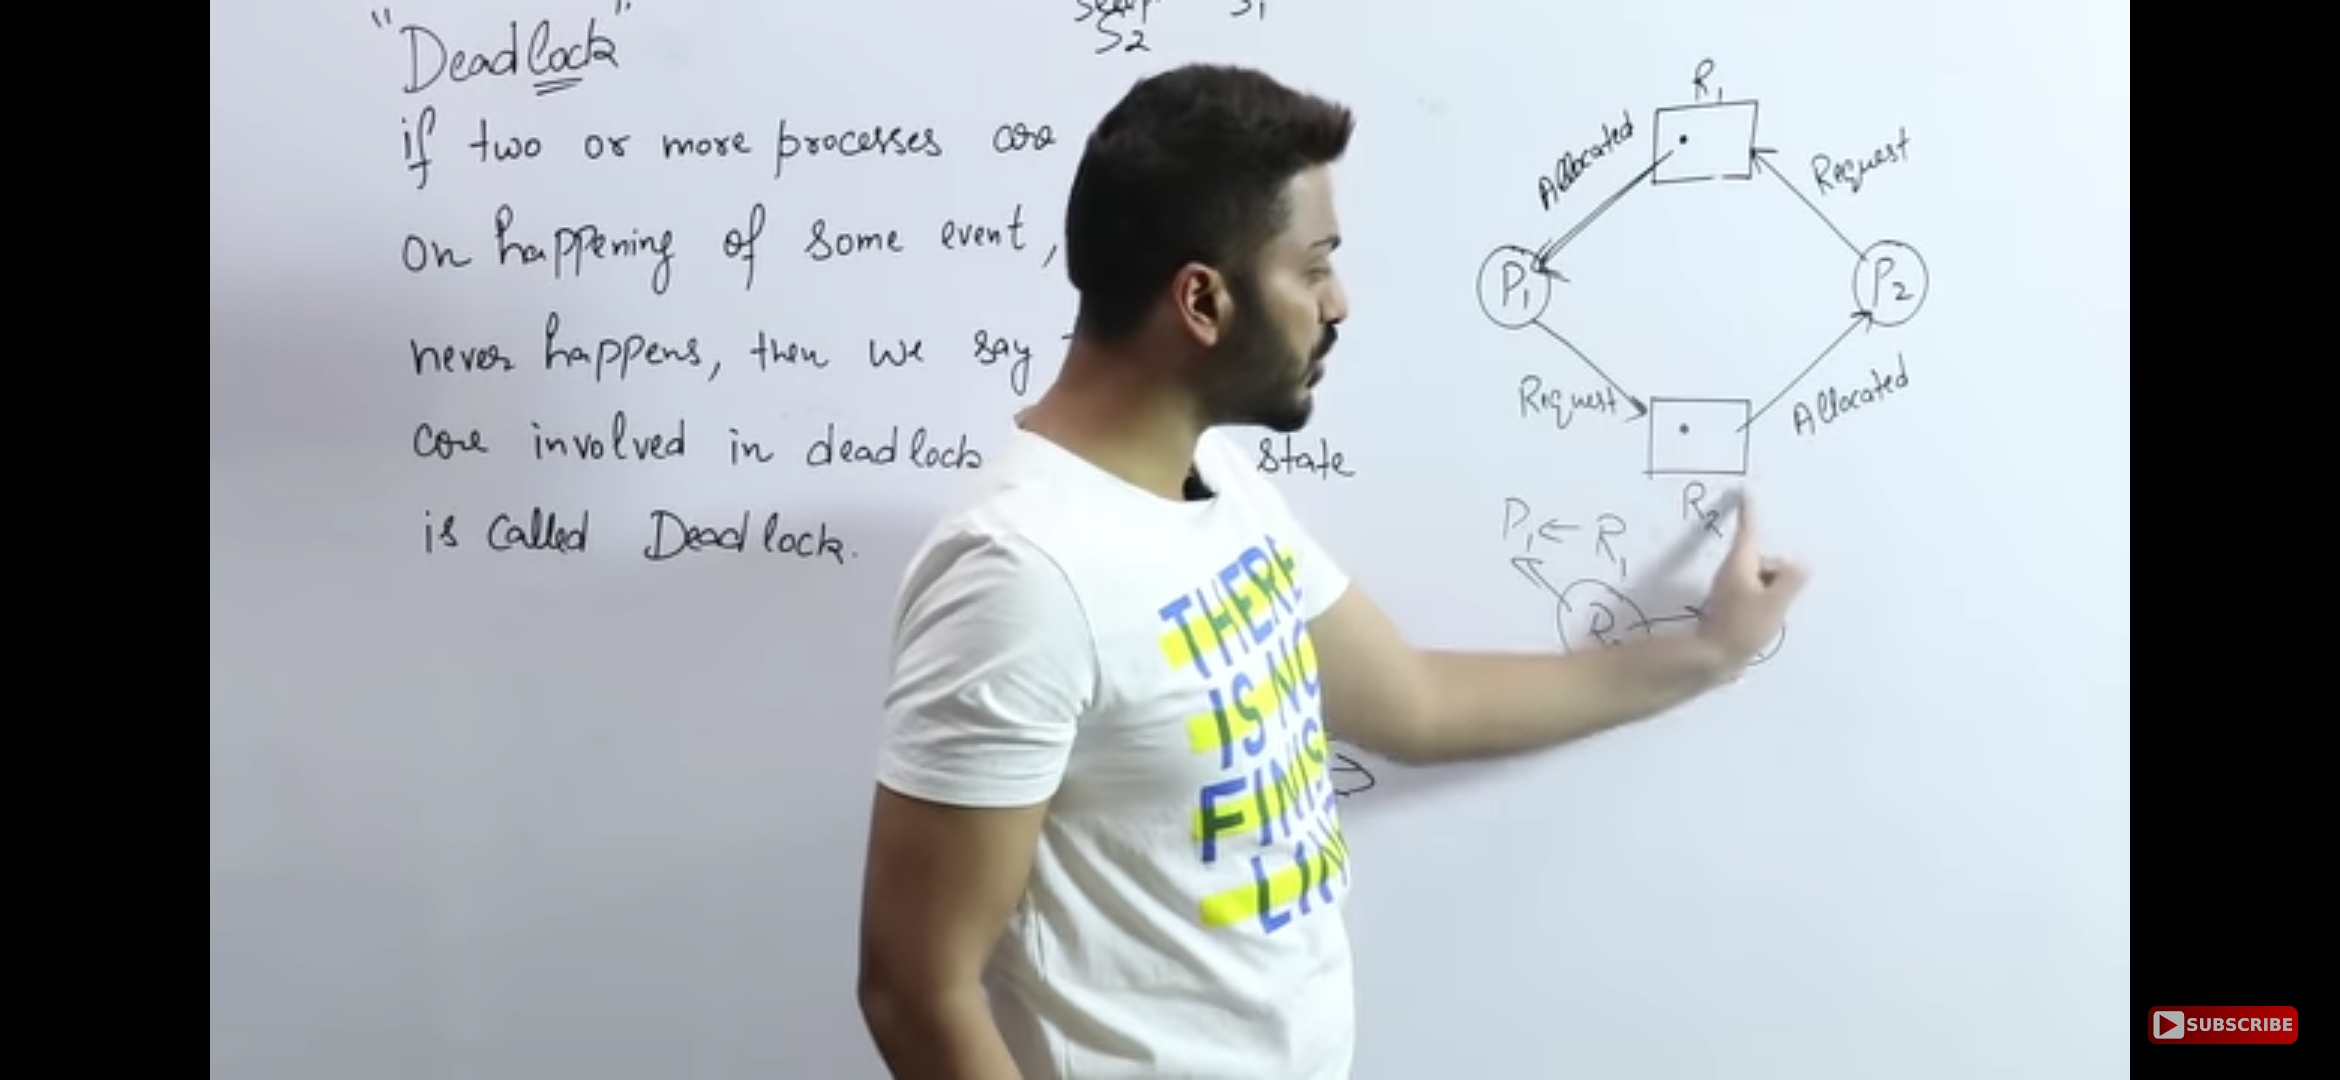 "Deadlock"
S2
S1
if two or more processes are
on happening of some event,
never happens, then we say
are involved in deadlock
state
is called Deadlock.
R1
Allocated
Request
P1
P2
Request
Allocated
R2
P1 ← R1
THERE
IS NO
FINIS
LIN
SUBSCRIBE